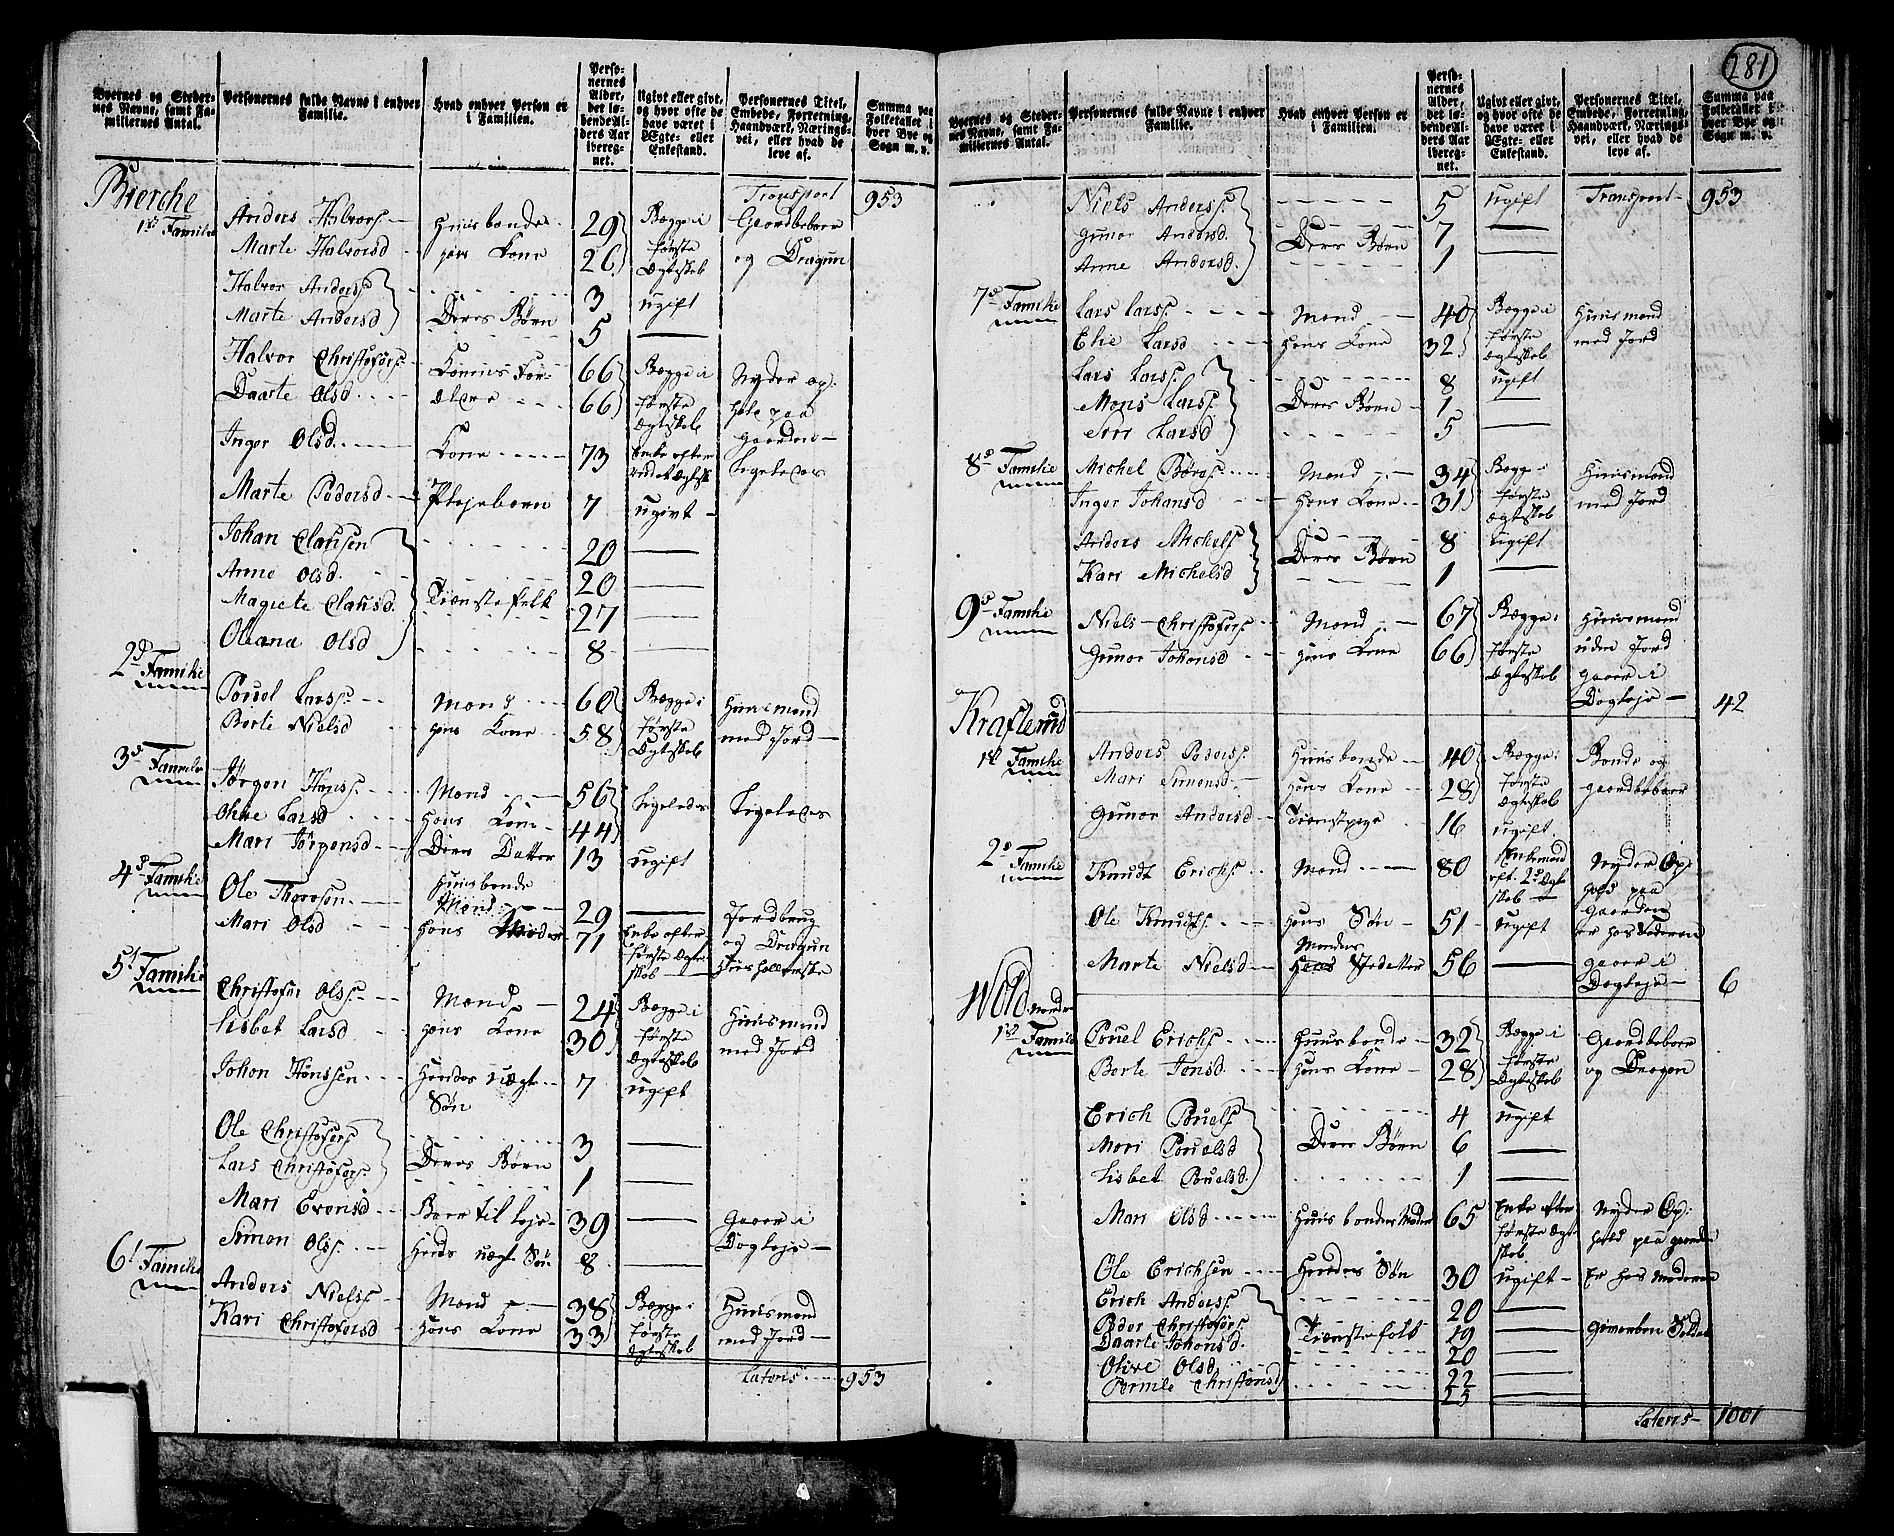 281
Byernes og Stedernes Navne, samt Familiernes Antal.
Personernes fulde Navne i enhver Familie.
Hvad enhver Person er i Familien.
Personernes Alder, det løbende Alders Aar iberegnet.
Ugivt eller givt, og hvor ofte de have været i Ægte- eller Enkestand.
Personernes Titel, Embede, Forretning, Haandværk, Næringsvei, eller hvad de leve af.
Summa paa Folketallet i hver Bye og Sogn m. v.
Bierche Transport 953
1ste Familie Anders Halvors. Huusbonde 29 Begge i Gaardbeboer
Marte Halvorsd hans Kone 26 første Ægteskab og Dragun
Halvor Anders. 3 ugift
Marte Andersd Deres Børn 5 —
Halvor Christofers. Konens For- 66 Begge i Nyder op-
Daarte Olsd ældre 66 første Ægteskab hold paa Gaarden
Inger Olsd. Kone 73 Enke efter Ægtesk Ligeledes
Marte Pedersd Plejebarn 7 ugivt
Johan Clausen 20 —
Anne Olsd. 20 —
Magrete Clausd. Tienstefolk 27 —
Oleana Olsd 8 —
2d Familie
Pouel Lars. Mand 60 Begge i Huusmand
Berte Nielsd hans Kone 58 første Ægteskab med Jord
3d Familie
Jørgen Hans. Mand 56 Ligeledes Ligeledes
Olive Larsd hans Kone 44
Mari Jørgensd Deres Datter 13 ugift
4d Familie Huusbonde
Ole Thoresen Mand 29 — Jordbrug
Mari Olsd hans Moder 71 Enke efter første Ægteskab og Dragun
5t Familie
Christofer Ols. Mand 24 Begge i Huusmand
Lisbet Larsd hans Kone 30 første Ægteskab med Jord
Johan Hanssen Hendes uægte Søn 7 ugift
Ole Christofers. 3 —
Lars Christofers. Deres Børn 1 —
Mari Evensd Boer til Leje 39 — Gaaer i
Simon Ols. Hends uægt. Søn 8 Dagleje
6t Familie
Anders Niels. Mand 38 Begge i Huusmand
Kari Christofersd hans Kone 33 første Ægteskab med Jord
Lateris 953
Byernes og Stedernes Navne, samt Familiernes Antal.
Personernes fulde Navne i enhver Familie.
Hvad enhver Person er i Familien.
Personernes Alder, det løbende Alders Aar iberegnet.
Ugivt eller givt, og hvor ofte de have været i Ægte- eller Enkestand.
Personernes Titel, Embede, Forretning, Haandværk, Næringsvei, eller hvad de leve af.
Summa paa Folketallet i hver Bye og Sogn m. v.
Niels Anders. 5 ugift Transport 953
Gunor Andersd. Deres Børn 7 —
Anne Andersd. 1 —
7d Familie Lars Lars. Mand 40 Begge i Huusmand
Elie Larsd hans Kone 32 første Ægteskab med Jord
Lars Lars. 8 ugift
Mons Lars. Deres Børn 1 —
Siri Larsd 5 —
8d Familie Michel Børes. Mand 34 Begge i Huusmand
Inger Johansd hans Kone 31 første Ægteskab med Jord
Anders Michels. 8 ugift
Kari Michelsd Deres Børn 1 —
9d Familie Niels Christofers. Mand 67 Begge i Huusmand
Gunor Johansd hans Kone 66 første Ægteskab uden Jord
Gaaer i Dagleje 42
Kraflerud
1st Familie Anders Peders. Huusbonde 40 Begge i Bonde og
Mari Simensd. hans Kone 28 første Ægteskab Gaardbeboer
Gunor Andersd Tienstpige 16 ugift
2d Familie Knudt Erichs. Mand 80 Enkemand eft. 2d Ægteskab Nyder Ophold paa Gaarden
Ole Knudts. hans Søn 51 ugift er hos Faderen
Marte Nielsd Mandens Stedatter 56 — gaaer i Dagleje 6
Wold
1st Familie Pouel Erichs. Huusbonde 32 Begge i Gaardbeboer
Berte Jonsd. hans Kone 28 første Ægteskab og Dragon
Erich Pouels. 4 ugift
Mari Pouelsd Deres Børn 6 —
Lisbet Pouelsd. 1 —
Mari Olsd Huusbondens Moder 65 Enke efter første Ægteskab Nyder Ophold paa Gaarden
Ole Erichsen Hendes Søn 30 ugift Er hos Moderen
Erich Anders. 20 —
Peder Christofers. Tienstefolk 19 — Gevorben Soldat
Daarte Johansd. 20 —
Olive Olsd 22 —
Pernile Christensd 25 —
Lateris 1001